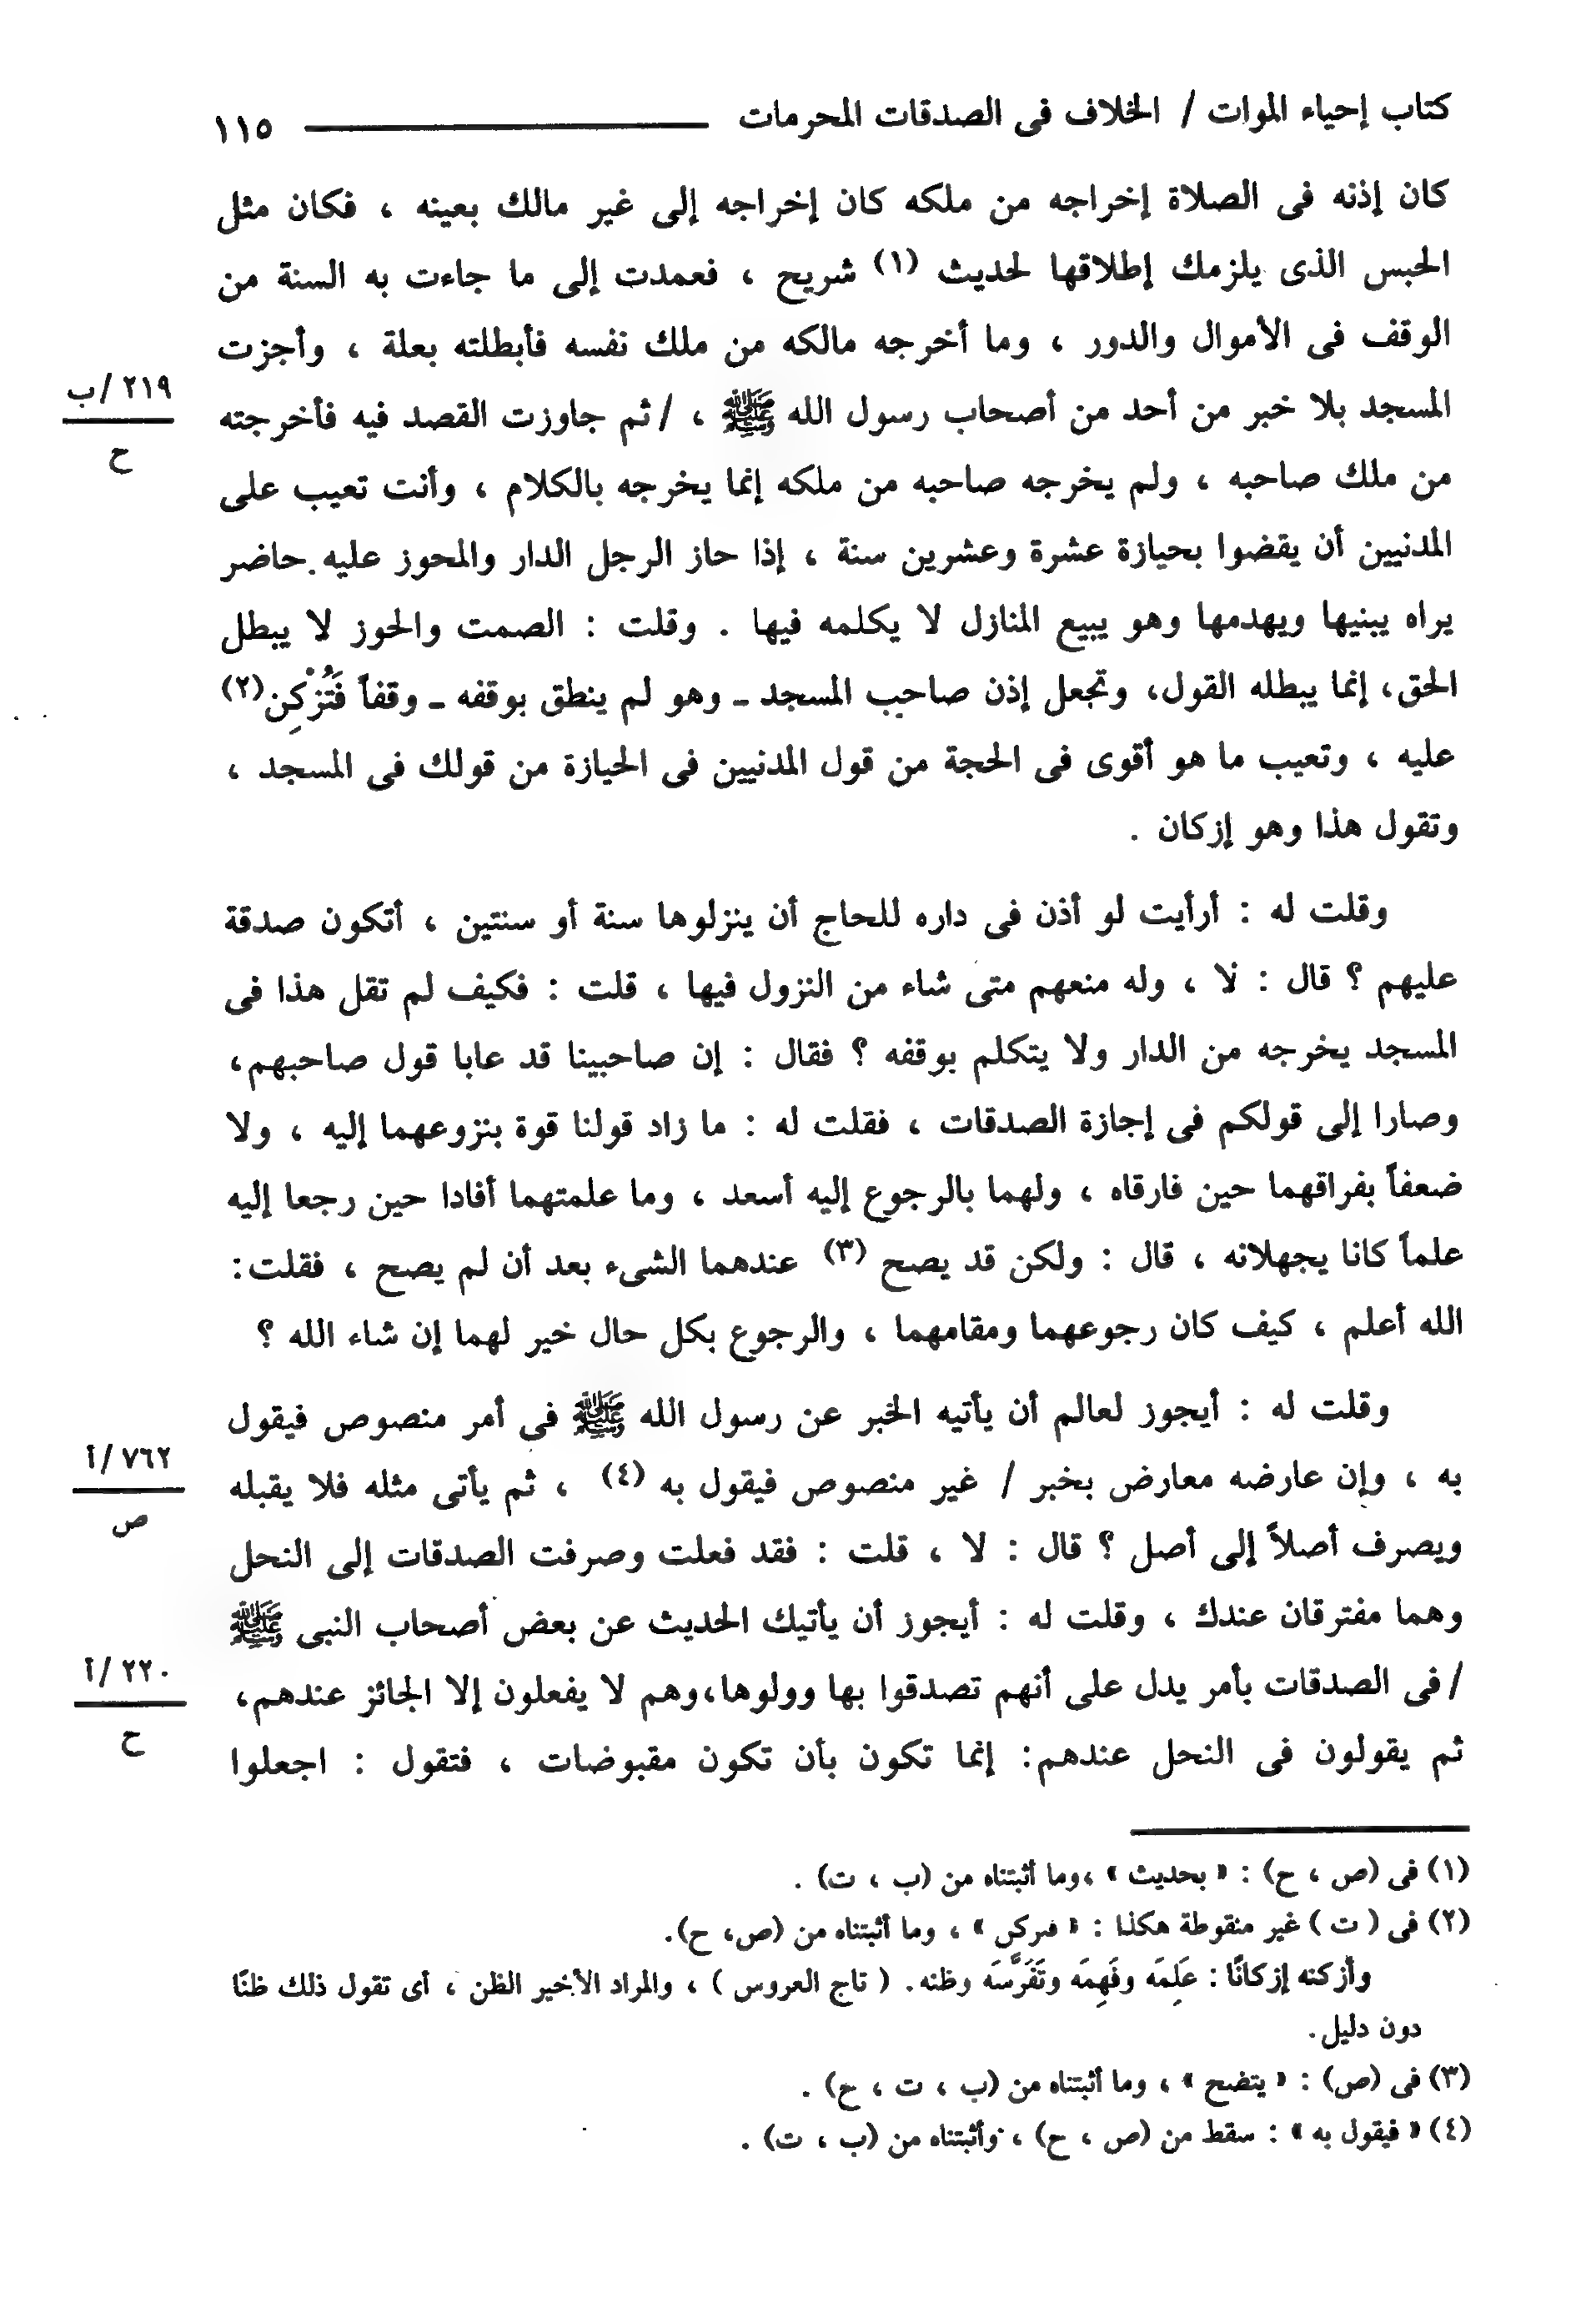 كتاب إحياء الموات / الخلاف فى الصدقات المحرمات ١١٥
كان إذنه فى الصلاة إخراجه من ملكه كان إخراجه إلى غير مالك بعينه ، فكان مثل
الحبس الذى يلزمك إطلاقها لحديث (١) شريح ، فعمدت إلى ما جاءت به السنة من
الوقف فى الأموال والدور ، وما أخرجه مالكه من ملك نفسه فأبطلته بعلة ، وأجزت
المسجد بلا خبر من أحد من أصحاب رسول الله ﷺ ، / ثم جاوزت القصد فيه فأخرجته
٢١٩ /ب
ح
من ملك صاحبه ، ولم يخرجه صاحبه من ملكه إنما يخرجه بالكلام ، وأنت تعيب على
المدنيين أن يقضوا بحيازة عشرة وعشرين سنة ، إذا حاز الرجل الدار والمحوز عليه حاضر
يراه يبنيها ويهدمها وهو يبيع المنازل لا يكلمه فيها . وقلت : الصمت والحوز لا يبطل
الحق، إنما يبطله القول، وتجعل إذن صاحب المسجد ـ وهو لم ينطق بوقفه ـ وقفاً فَتُزْكِن(٢)
عليه ، وتعيب ما هو أقوى فى الحجة من قول المدنيين فى الحيازة من قولك فى المسجد ،
وتقول هذا وهو إزكان .
وقلت له : أرأيت لو أذن فى داره للحاج أن ينزلوها سنة أو سنتين ، أتكون صدقة
عليهم ؟ قال : لا ، وله منعهم متى شاء من النزول فيها ، قلت : فكيف لم تقل هذا فى
المسجد يخرجه من الدار ولا يتكلم بوقفه ؟ فقال : إن صاحبينا قد عابا قول صاحبهم،
وصارا إلى قولكم فى إجازة الصدقات ، فقلت له : ما زاد قولنا قوة بنزوعهما إليه ، ولا
ضعفاً بفراقهما حين فارقاه ، ولهما بالرجوع إليه أسعد ، وما علمتهما أفادا حين رجعا إليه
علماً كانا يجهلانه ، قال : ولكن قد يصح (٣) عندهما الشىء بعد أن لم يصح ، فقلت:
الله أعلم ، كيف كان رجوعهما ومقامهما ، والرجوع بكل حال خير لهما إن شاء الله ؟
وقلت له : أيجوز لعالم أن يأتيه الخبر عن رسول الله ﷺ فى أمر منصوص فيقول
به ، وإن عارضه معارض بخبر / غير منصوص فيقول به (٤) ، ثم يأتى مثله فلا يقبله
٧٦٢ /أ
ص
ويصرف أصلاً إلى أصل ؟ قال : لا ، قلت : فقد فعلت وصرفت الصدقات إلى النحل
وهما مفترقان عندك ، وقلت له : أيجوز أن يأتيك الحديث عن بعض أصحاب النبى ﷺ
/ فى الصدقات بأمر يدل على أنهم تصدقوا بها وولوها،وهم لا يفعلون إلا الجائز عندهم،
٢٢٠ /أ
ح
ثم يقولون فى النحل عندهم: إنما تكون بأن تكون مقبوضات ، فتقول : اجعلوا
(١) فى (ص ، ح) : « بحديث » ،وما أثبتناه من (ب ، ت) .
(٢) فى ( ت ) غير منقوطة هكذا : « ‎فٮركں » ، وما أثبتناه من (ص، ح).
وأزكنه إزكانًا : عَلِمَه وفَهِمَه وتَفَرَّسَه وظنه. ( تاج العروس ) ، والمراد الأخير الظن ، أى تقول ذلك ظنًا
دون دليل.
(٣) فى (ص) : « يتضح » ، وما أثبتناه من (ب ، ت ، ح) .
(٤) « فيقول به » : سقط من (ص ، ح) ، وأثبتناه من (ب ، ت) .